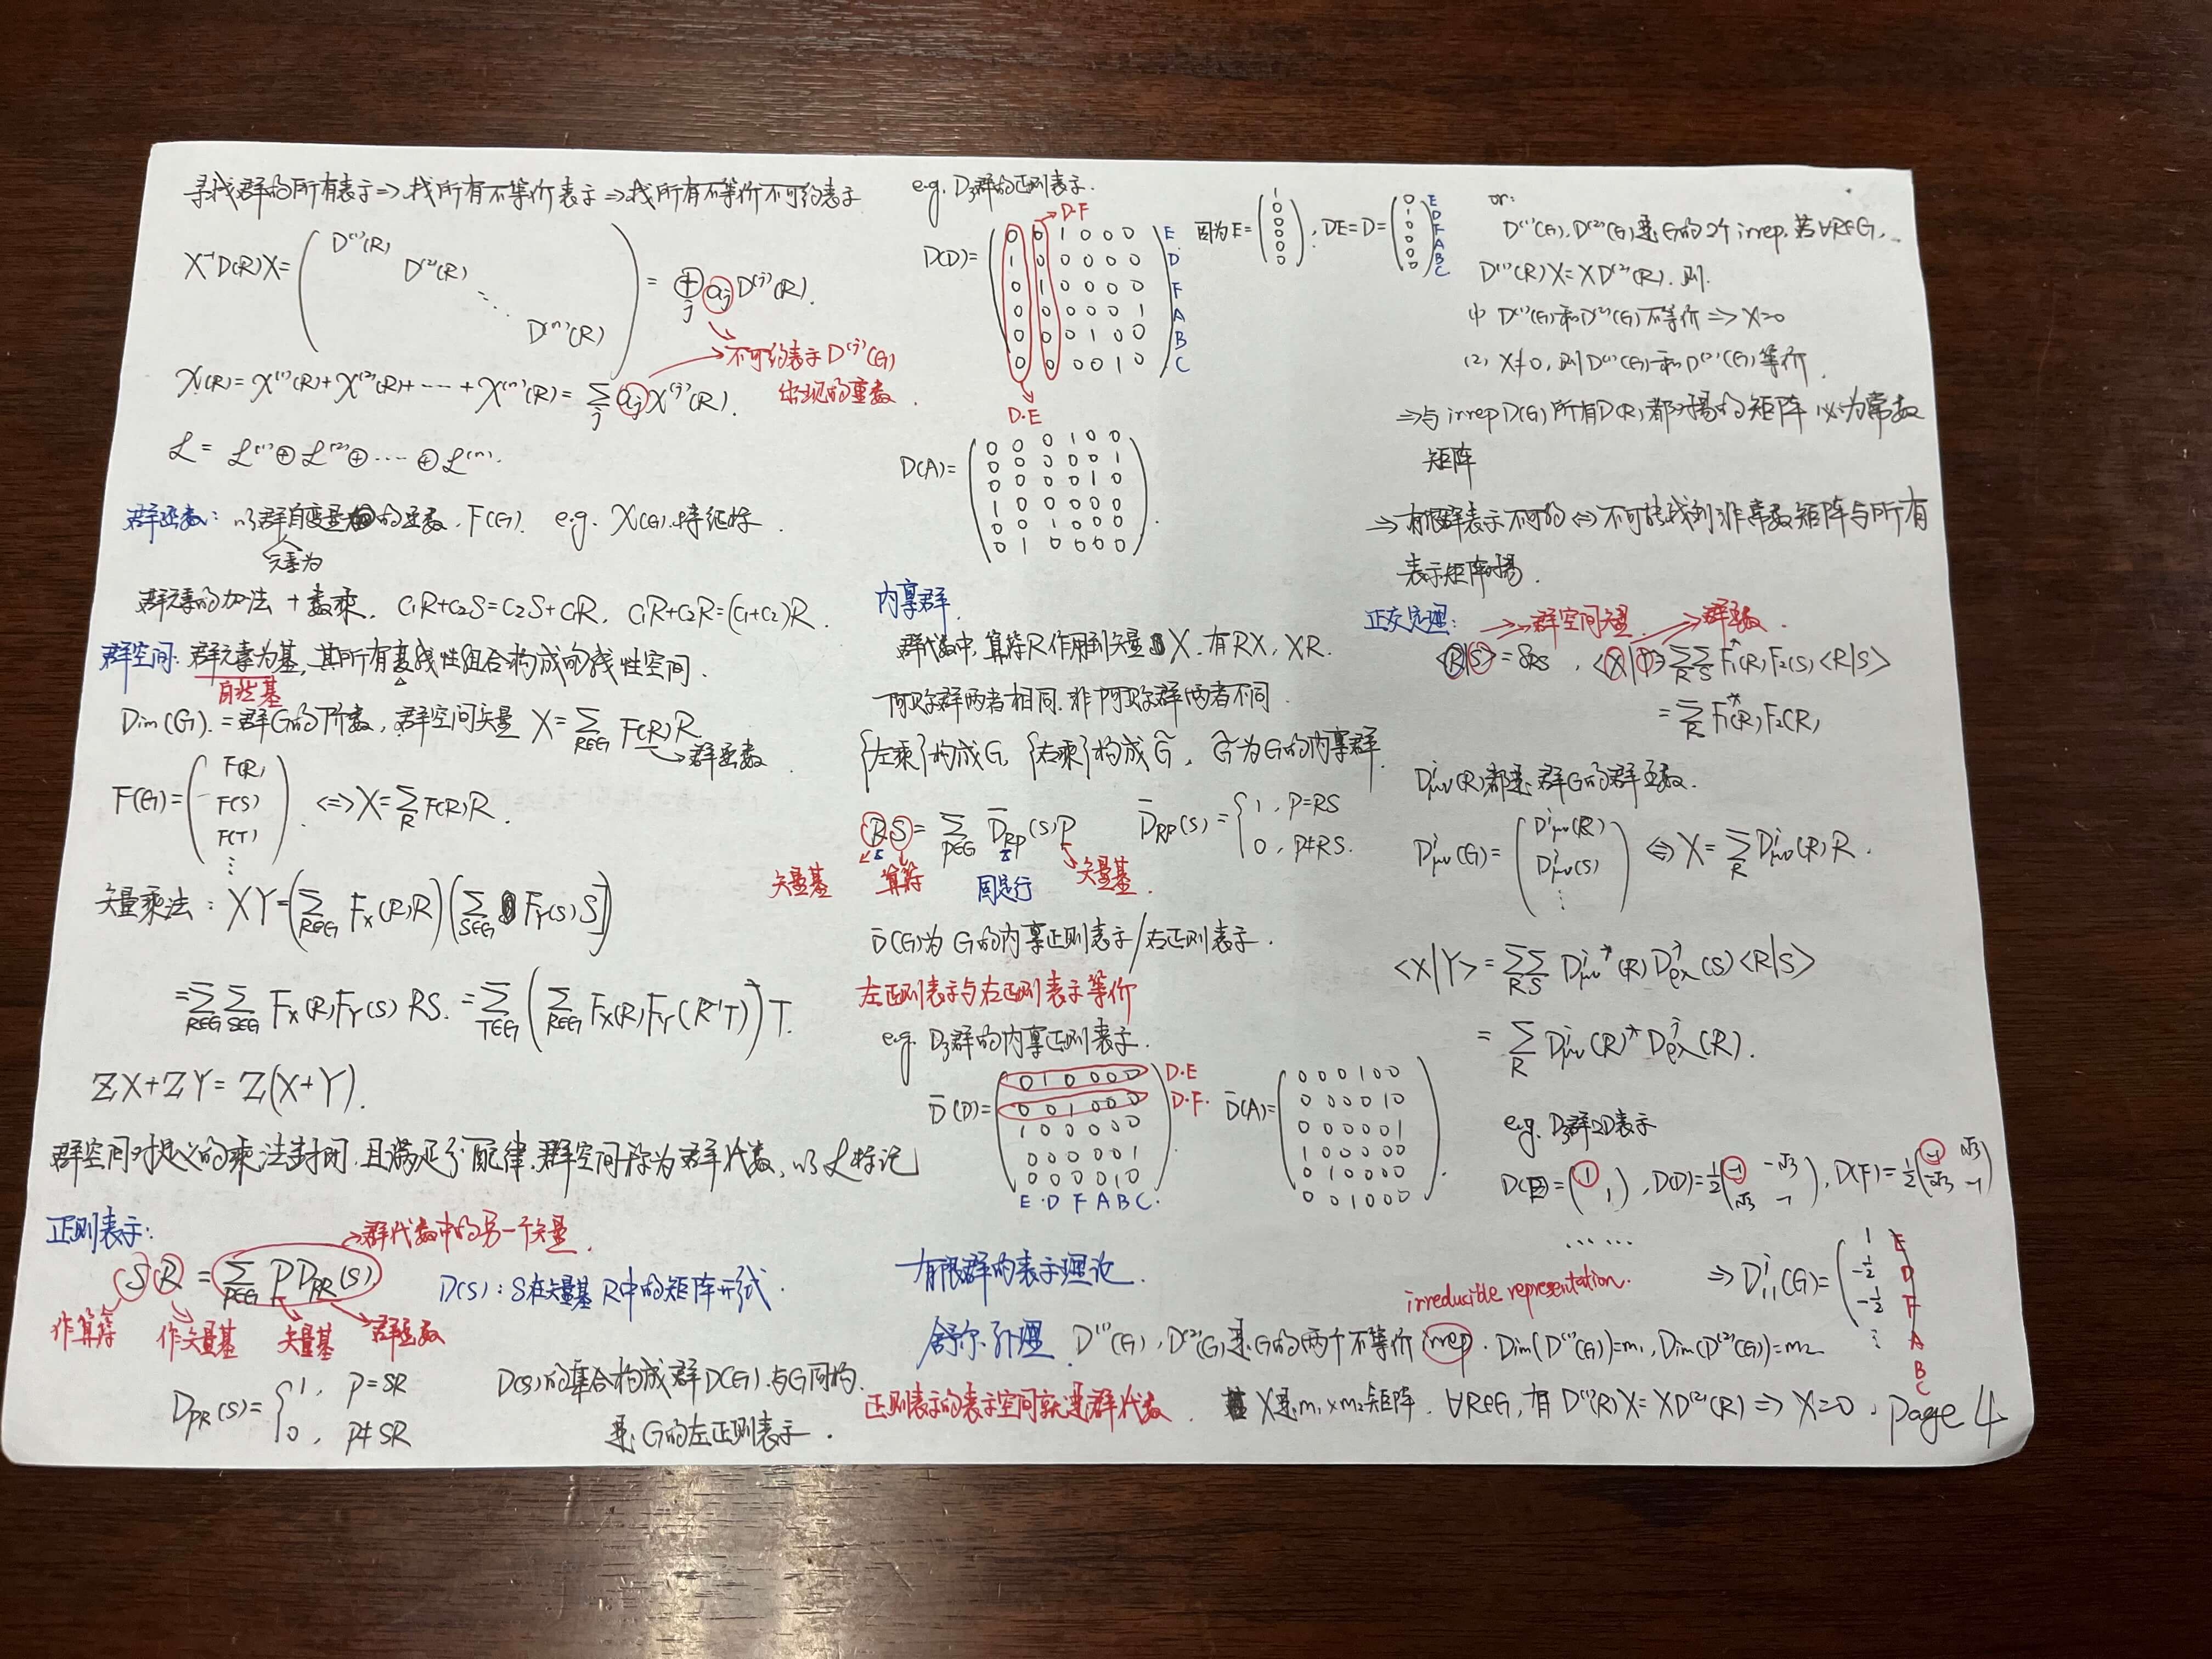 寻找群的所有表示⇒找所有不等价表示⇒找所有不等价不可约表示
X⁻¹D(R)X = ( D⁽¹⁾(R) D⁽²⁾(R) ⋱ D⁽ⁿ⁾(R) ) = ⊕_j a_j D⁽ʲ⁾(R).
χ(R) = χ⁽¹⁾(R)+χ⁽²⁾(R)+⋯+χ⁽ⁿ⁾(R) = Σ_j a_j χ⁽ʲ⁾(R).
不可约表示D⁽ʲ⁾(G)
出现的重数.
ℒ = ℒ⁽¹⁾⊕ℒ⁽²⁾⊕⋯⊕ℒ⁽ⁿ⁾.
群函数: 以群自变量的函数. F(G). e.g. χ(G).特征标.
元素为
群元素的加法+数乘. C₁R+C₂S=C₂S+C₁R, C₁R+C₂R=(C₁+C₂)R.
群空间: 群元素为基, 其所有线性组合构成的线性空间.
自然基
Dim(G). = 群G的阶数, 群空间矢量 X = Σ_{R∈G} F(R)R
→群函数
F(G) = ( F(R) F(S) F(T) ⋮ ) ⟺ X = Σ_R F(R)R.
矢量乘法: XY = (Σ_{R∈G} F_X(R)R)(Σ_{S∈G} F_Y(S)S)
= Σ_{R∈G} Σ_{S∈G} F_X(R)F_Y(S) RS. = Σ_{T∈G} (Σ_{R∈G} F_X(R)F_Y(R⁻¹T)) T.
ZX+ZY = Z(X+Y).
群空间对定义的乘法封闭, 且满足分配律. 群空间称为群代数, 以ℒ标记
正则表示:
→群代数中的另一个矢量.
SR = Σ_{P∈G} P D_{PR}(S)
D(S): S在矢量基R中的矩阵形式.
作算符 作矢量基 矢量基 群函数
D_{PR}(S) = { 1, P=SR
0, P≠SR
D(S)的集合构成群D(G). 与G同构.
是G的左正则表示.
e.g. D₃群的正则表示.
→D·F
D(D) =
0 0 1 0 0 0 E
1 0 0 0 0 0 D
0 1 0 0 0 0 F
0 0 0 0 0 1 A
0 0 0 1 0 0 B
0 0 0 0 1 0 C
D·E
因为E = ( 1 0 0 0 0 0 ), DE=D = ( 0 1 0 0 0 0 ) E D F A B C
D(A) =
0 0 0 1 0 0
0 0 0 0 0 1
0 0 0 0 1 0
1 0 0 0 0 0
0 0 1 0 0 0
0 1 0 0 0 0
内禀群.
群代数中, 算符R作用到矢量X. 有RX, XR.
阿贝尔群两者相同. 非阿贝尔群两者不同.
{左乘}构成G, {右乘}构成G̃, G̃为G的内禀群.
RS = Σ_{P∈G} D̄_{RP}(S)P D̄_{RP}(S) = { 1, P=RS
0, P≠RS.
矢量基 算符 固定行 矢量基.
D̄(G)为G的内禀正则表示/右正则表示.
左正则表示与右正则表示等价
e.g. D₃群的内禀正则表示.
D̄(D) =
0 1 0 0 0 0 D·E
0 0 1 0 0 0 D·F.
1 0 0 0 0 0
0 0 0 0 0 1
0 0 0 0 1 0
E D F A B C.
D̄(A) =
0 0 0 1 0 0
0 0 0 0 1 0
0 0 0 0 0 1
1 0 0 0 0 0
0 1 0 0 0 0
0 0 1 0 0 0
有限群的表示理论.
irreducible representation.
舒尔引理. D⁽¹⁾(G), D⁽²⁾(G)是G的两个不等价irrep. Dim(D⁽¹⁾(G))=m₁, Dim(D⁽²⁾(G))=m₂
正则表示的表示空间就是群代数.
X是m₁×m₂矩阵. ∀R∈G, 有D⁽¹⁾(R)X = XD⁽²⁾(R) ⇒ X=0.
or:
D⁽¹⁾(G), D⁽²⁾(G)是G的2个irrep. 若∀R∈G,
D⁽¹⁾(R)X = XD⁽²⁾(R). 则.
(1) D⁽¹⁾(G)和D⁽²⁾(G)不等价⇒X=0
(2) X≠0, 则D⁽¹⁾(G)和D⁽²⁾(G)等价.
⇒与irrep D(G)所有D(R)都对易的矩阵必为常数
矩阵
⇒有限群表示不可约⟺不可能找到非常数矩阵与所有
表示矩阵对易.
正交定理: 群空间矢量. 群函数.
⟨R|S⟩ = δ_{RS}, ⟨X|Y⟩ = Σ_R Σ_S F₁*(R)F₂(S)⟨R|S⟩
= Σ_R F₁*(R)F₂(R)
Dʲ_{μν}(R)都是群G的群函数.
Dʲ_{μν}(G) = ( Dʲ_{μν}(R) Dʲ_{μν}(S) ⋮ ) ⟺ X = Σ_R Dʲ_{μν}(R)R.
⟨X|Y⟩ = Σ_R Σ_S Dⁱ_{μν}*(R)Dʲ_{ρλ}(S)⟨R|S⟩
= Σ_R Dⁱ_{μν}(R)*Dʲ_{ρλ}(R).
e.g. D₃群2D表示
D(E) = ( 1 1 ), D(D) = ½( -1 -√3 √3 -1 ), D(F) = ½( -1 √3 -√3 -1 )
……
⇒ Dʲ₁₁(G) = ( 1 -½ -½ ⋮ ) E D F A B C
page 4